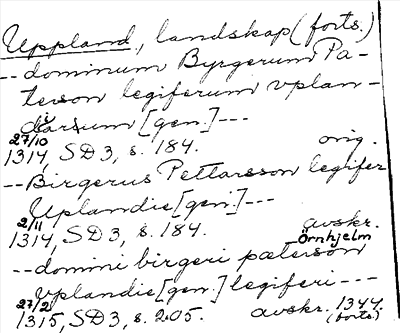 Uppland, landskap (forts.)
-- dominum Byrgerum Pa-
terson legiferum vplan-
diarum [gen.] ---
27/10 1314, SD 3, s. 184. orig.
-- Birgerus Pettarsson legifer
Uplandie [gen.] ---
2/11 1314, SD 3, s. 184. avskr. Örnhjelm
-- domini birgeri pæterson
vplandie [gen.] legiferi ---
27/2 1315, SD 3, s. 205. avskr. 1344
(forts.)